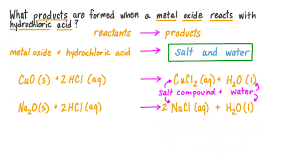 What products are formed when a metal oxide reacts with
hydrochloric acid?
reactants → products
metal oxide + hydrochloric acid → salt and water
CuO(s) + 2HCl(aq) → CuCl₂(aq) + H₂O(l)
salt compound + water
Na₂O(s) + 2HCl(aq) → 2NaCl(aq) + H₂O(l)